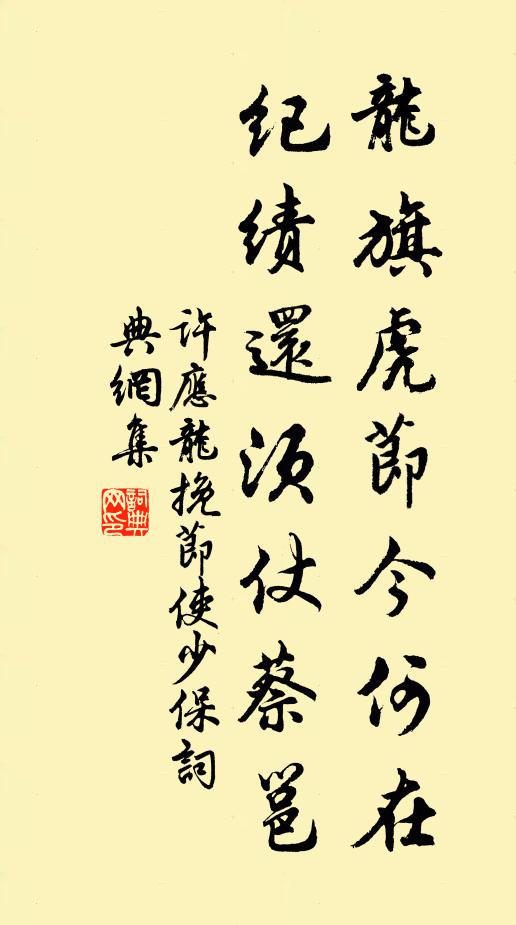 龍旗虎節今何在
紀績還須仗蔡邕
許應龍挽節使少保詞
典網集
詞典網印